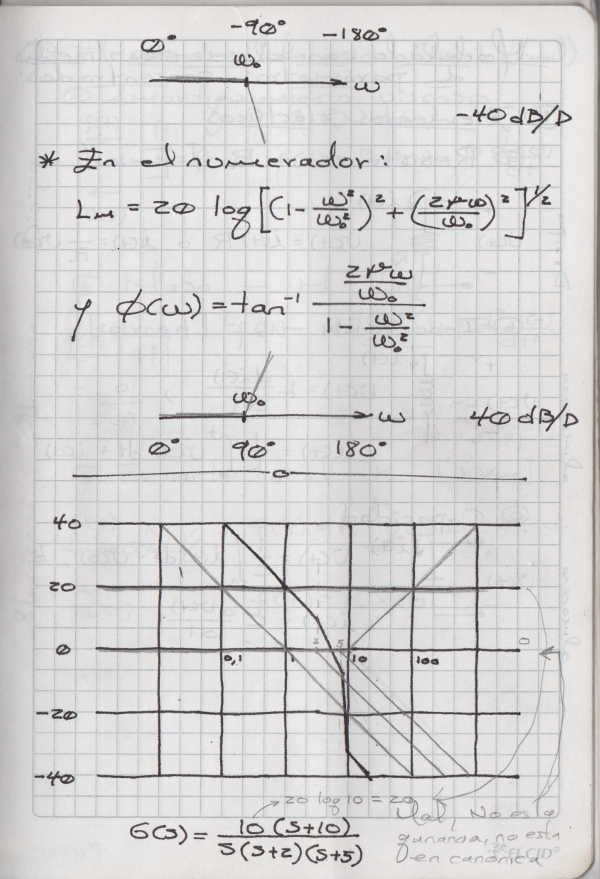 -90°
0° -180°
ω₀
ω
-40 dB/D
* En el numerador:
Lₘ = 20 log [(1 - ω²/ω₀²)² + (2rω/ω₀)²]^1/2
y ϕ(ω) = tan⁻¹ (2rω/ω₀)/(1 - ω²/ω₀²)
ω₀
ω 40 dB/D
0° 90° 180°
40
20
0
0,1 1 2 5 10 100
-20
-40
20 log 10 = 20
G(s) = 10(s+10)/s(s+2)(s+5)
Mal, No es a
ganancia, no está
en canónica
EL CID